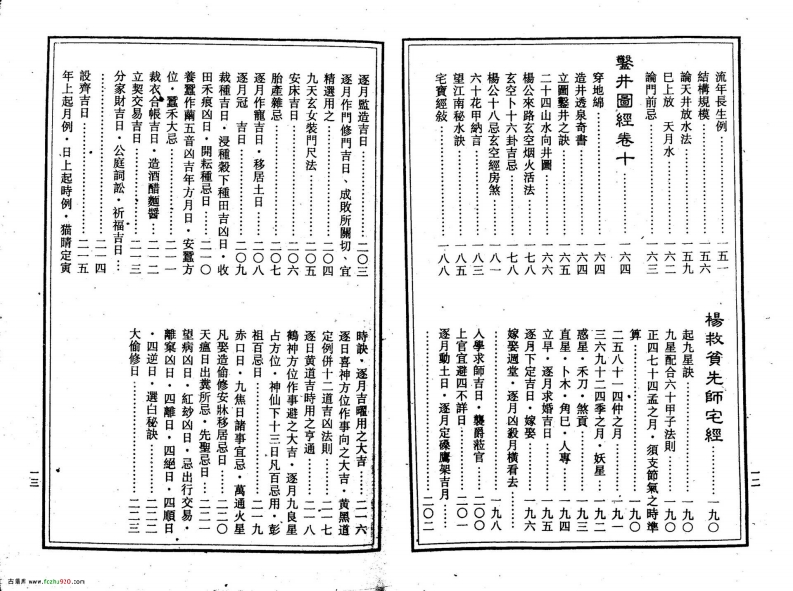 流年長生例……一五一
結構規模……一五六
論天井放水法……一五九
巳上放 天月水……一六二
論門前忌……一六三
鑿井圖經卷十……一六四
穿地綿……一六四
造井透泉奇書……一六四
立圖鑿井之訣……一六五
二十四山水向井圖……一六六
楊公來路玄空烟火活法……一七八
玄空卜十六卦吉忌……一七八
楊公十八忌玄空經房煞……一八一
六十花甲納言……一八三
望江南秘水訣……一八五
宅寶經敍……一八八
楊救貧先師宅經……一九〇
起九星訣……一九〇
九星配合六十甲子法則……一九〇
正四七十四孟之月・須支節氣之時準
算……一九〇
二五八十一四仲之月……一九一
三六九十二四季之月・妖星……一九二
惑星・禾刀・煞貢……一九三
直星・卜木・角巳・人專……一九四
立早・逐月求婚吉日……一九五
逐月下定吉日・嫁娶……一九六
嫁娶週堂・逐月凶殺月橫看去
……一九八
入學求師吉日・襲爵蒞官……二〇〇
上官宜避四不詳日……二〇一
逐月動土日・逐月定磉鷹架吉月
……二〇二
一二
逐月監造吉日……二〇三
逐月作門修門吉日、成敗所關切、宜
精選用之……二〇四
九天玄女裝門尺法……二〇五
安床吉日……二〇六
胎產雜忌……二〇七
逐月作龍吉日・移居土日……二〇八
逐月冠 吉日……二〇九
栽種吉日・浸種穀下種田吉凶日・收
田禾痕凶日・開耘種忌日……二一〇
養蠶作繭五音凶吉年方月日・安蠶方
位・蠶禾大忌……二一一
裁衣合帳吉日・造酒醋麵醬……二一二
立契交易吉日……二一三
分家財吉日・公庭詞訟・祈福吉日…
……二一四
設齊吉日……二一五
年上起月例・日上起時例・猫睛定寅
時訣・逐月吉曜用之大吉……二一六
逐日喜神方位作事向之大吉・黄黑道
定例併十二道吉凶法則……二一七
逐日黄道吉時用之亨通……二一八
鶴神方位作事避之大吉・逐月九良星
占方位・神仙下十三日凡百忌用・彭
祖百忌日……二一九
赤口日・九焦日諸事宜忌・萬通火星
凡娶造偷修安牀移居忌日……二二〇
天瘟日出糞所忌・先聖忌日……二二一
望病凶日・紅紗凶日・忌出行交易・
離窠凶日・四離日・四絕日・四順日
・四逆日・選白秘訣……二二二
大偷修日……二二三
一三
古易库 www.fczhu920.com